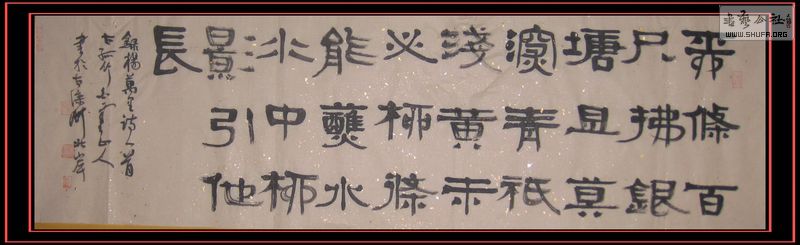 柳條百
尺拂銀
塘且莫
深青祇
淺黃未
必柳條
能蘸水
水中柳
影引他
長
錄楊萬里詩一首
山人
書於古北岸
书艺公社
WWW.SHUFA.ORG